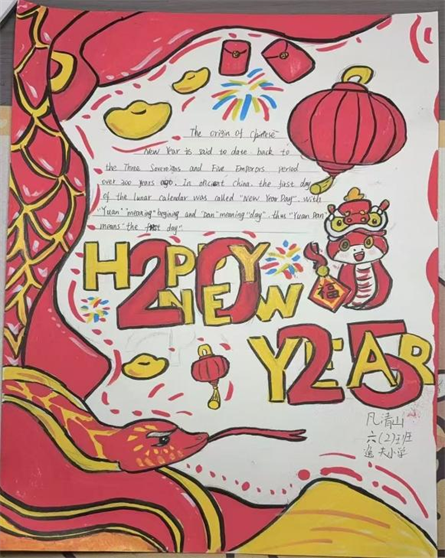 The origin of Chinese
New Year is said to date back to
the Three Sovereigns and Five Emperors period
over 200 years ago. In ancient China, the first day
of the lunar calendar was called "New Year Day" with
"Yuan" meaning begining and "Dan" meaning "day". thus "Yuan Dan"
means "the first day"
HAPPY
20
NEW
YEAR
25
福
六(2)班